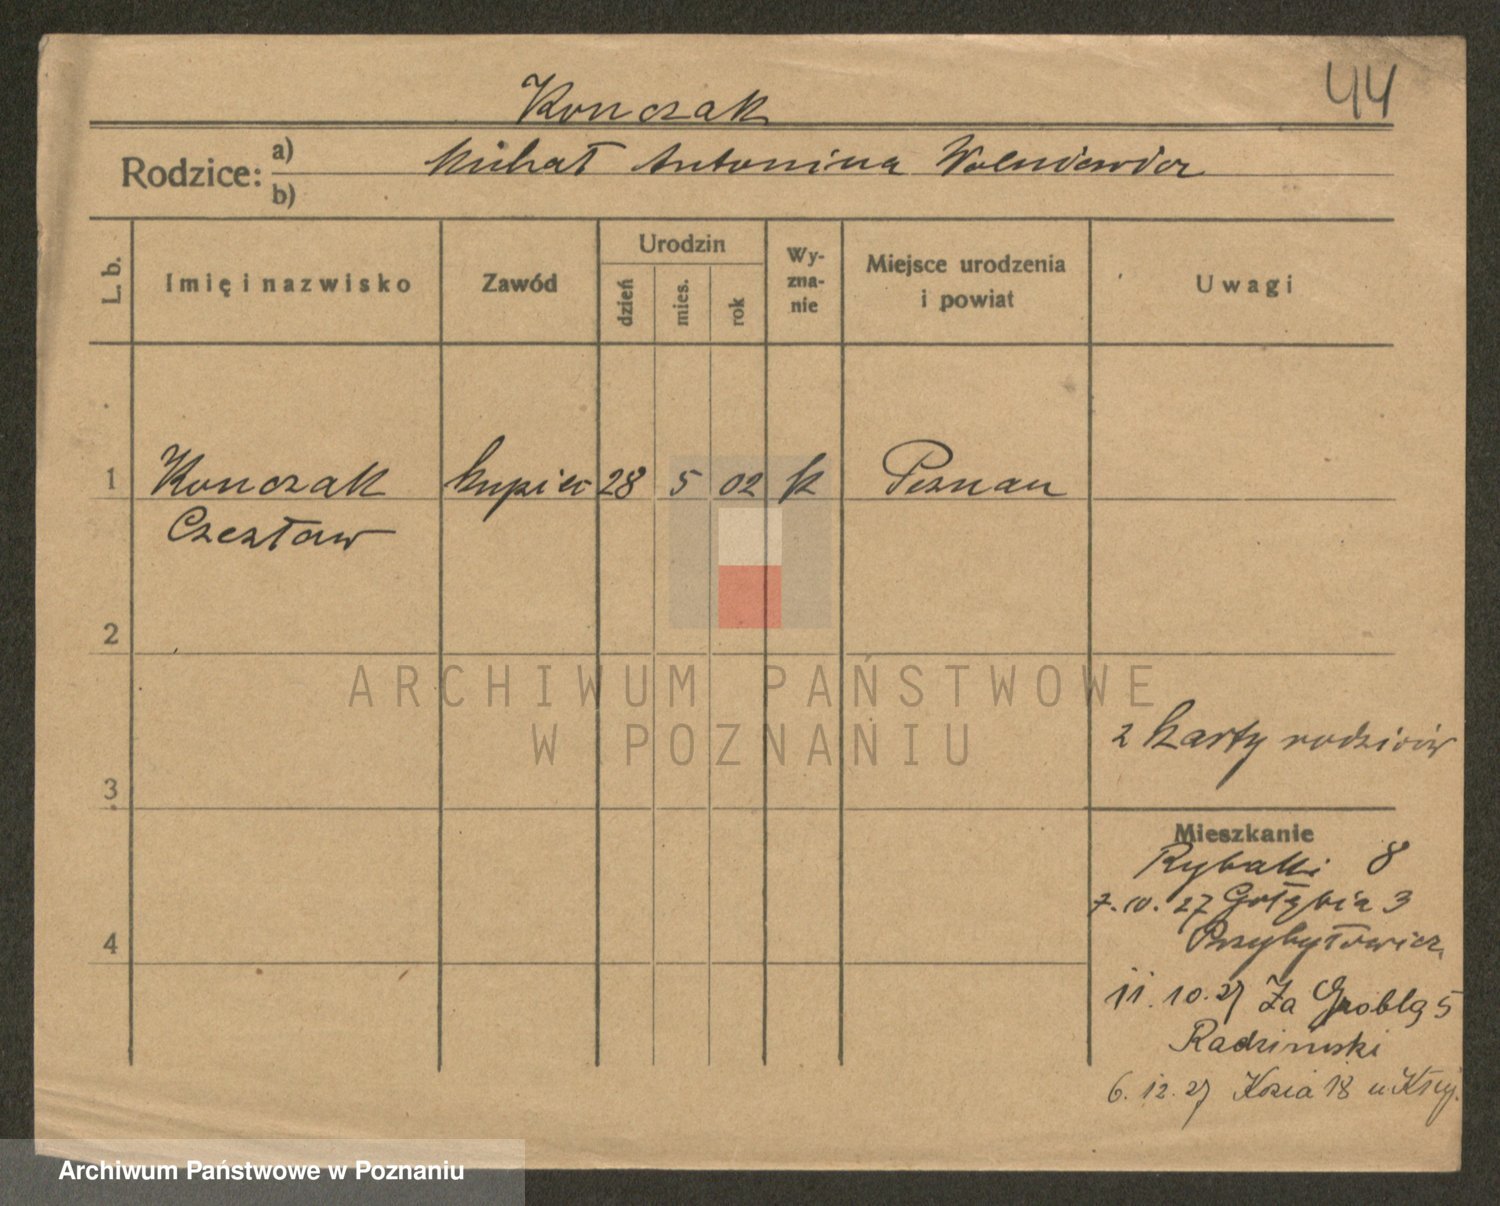 44
Konczak
Rodzice: a) Michał Antonina Wolniewicz
b)
L. b.
Imię i nazwisko
Zawód
Urodzin
dzień
mies.
rok
Wy-
zna-
nie
Miejsce urodzenia
i powiat
Uwagi
1 Konczak kupiec 28 5 02 k Poznan
Czesław
2
3
4
2 karty rodziców
Mieszkanie
Rybaki 8
7.10.27 Gołębia 3
Przybyłowicz
11.10.27 Za Groblą 5
Radzimski
6.12.27 Kozia 18 u
ARCHIWUM PAŃSTWOWE
W POZNANIU
Archiwum Państwowe w Poznaniu